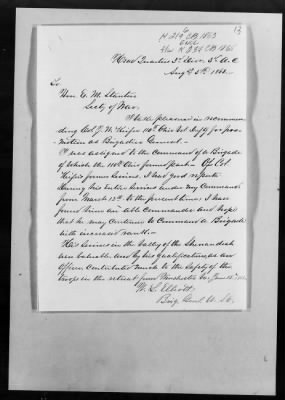 13
H 219 CB 1863
Head Quarters 3d Div. 3d A.C.
Aug 5th 1863.
To
Hon E. M. Stanton
Secty of War.
I take pleasure in recommen-
ding Col J. W. Keifer 110th Ohio Vol Infty for pro-
motion as Brigadier General.
I was assigned to the Command of a Brigade
of which the 110th Ohio formed part. Of Col
Keifer's former services, I had good reports.
During his entire services under my Command
from March 13th to the present time, I have
found him an able Commander and hope
that he may continue to Command a Brigade
with increased rank.
His services in the Valley of the Shenandoah
are valuable and by his qualifications as an
Officer Contributed much to the Safety of the
troops in the retreat from Winchester Va June 15th
W. L. Elliott
Brig. Genl. U. S. V.